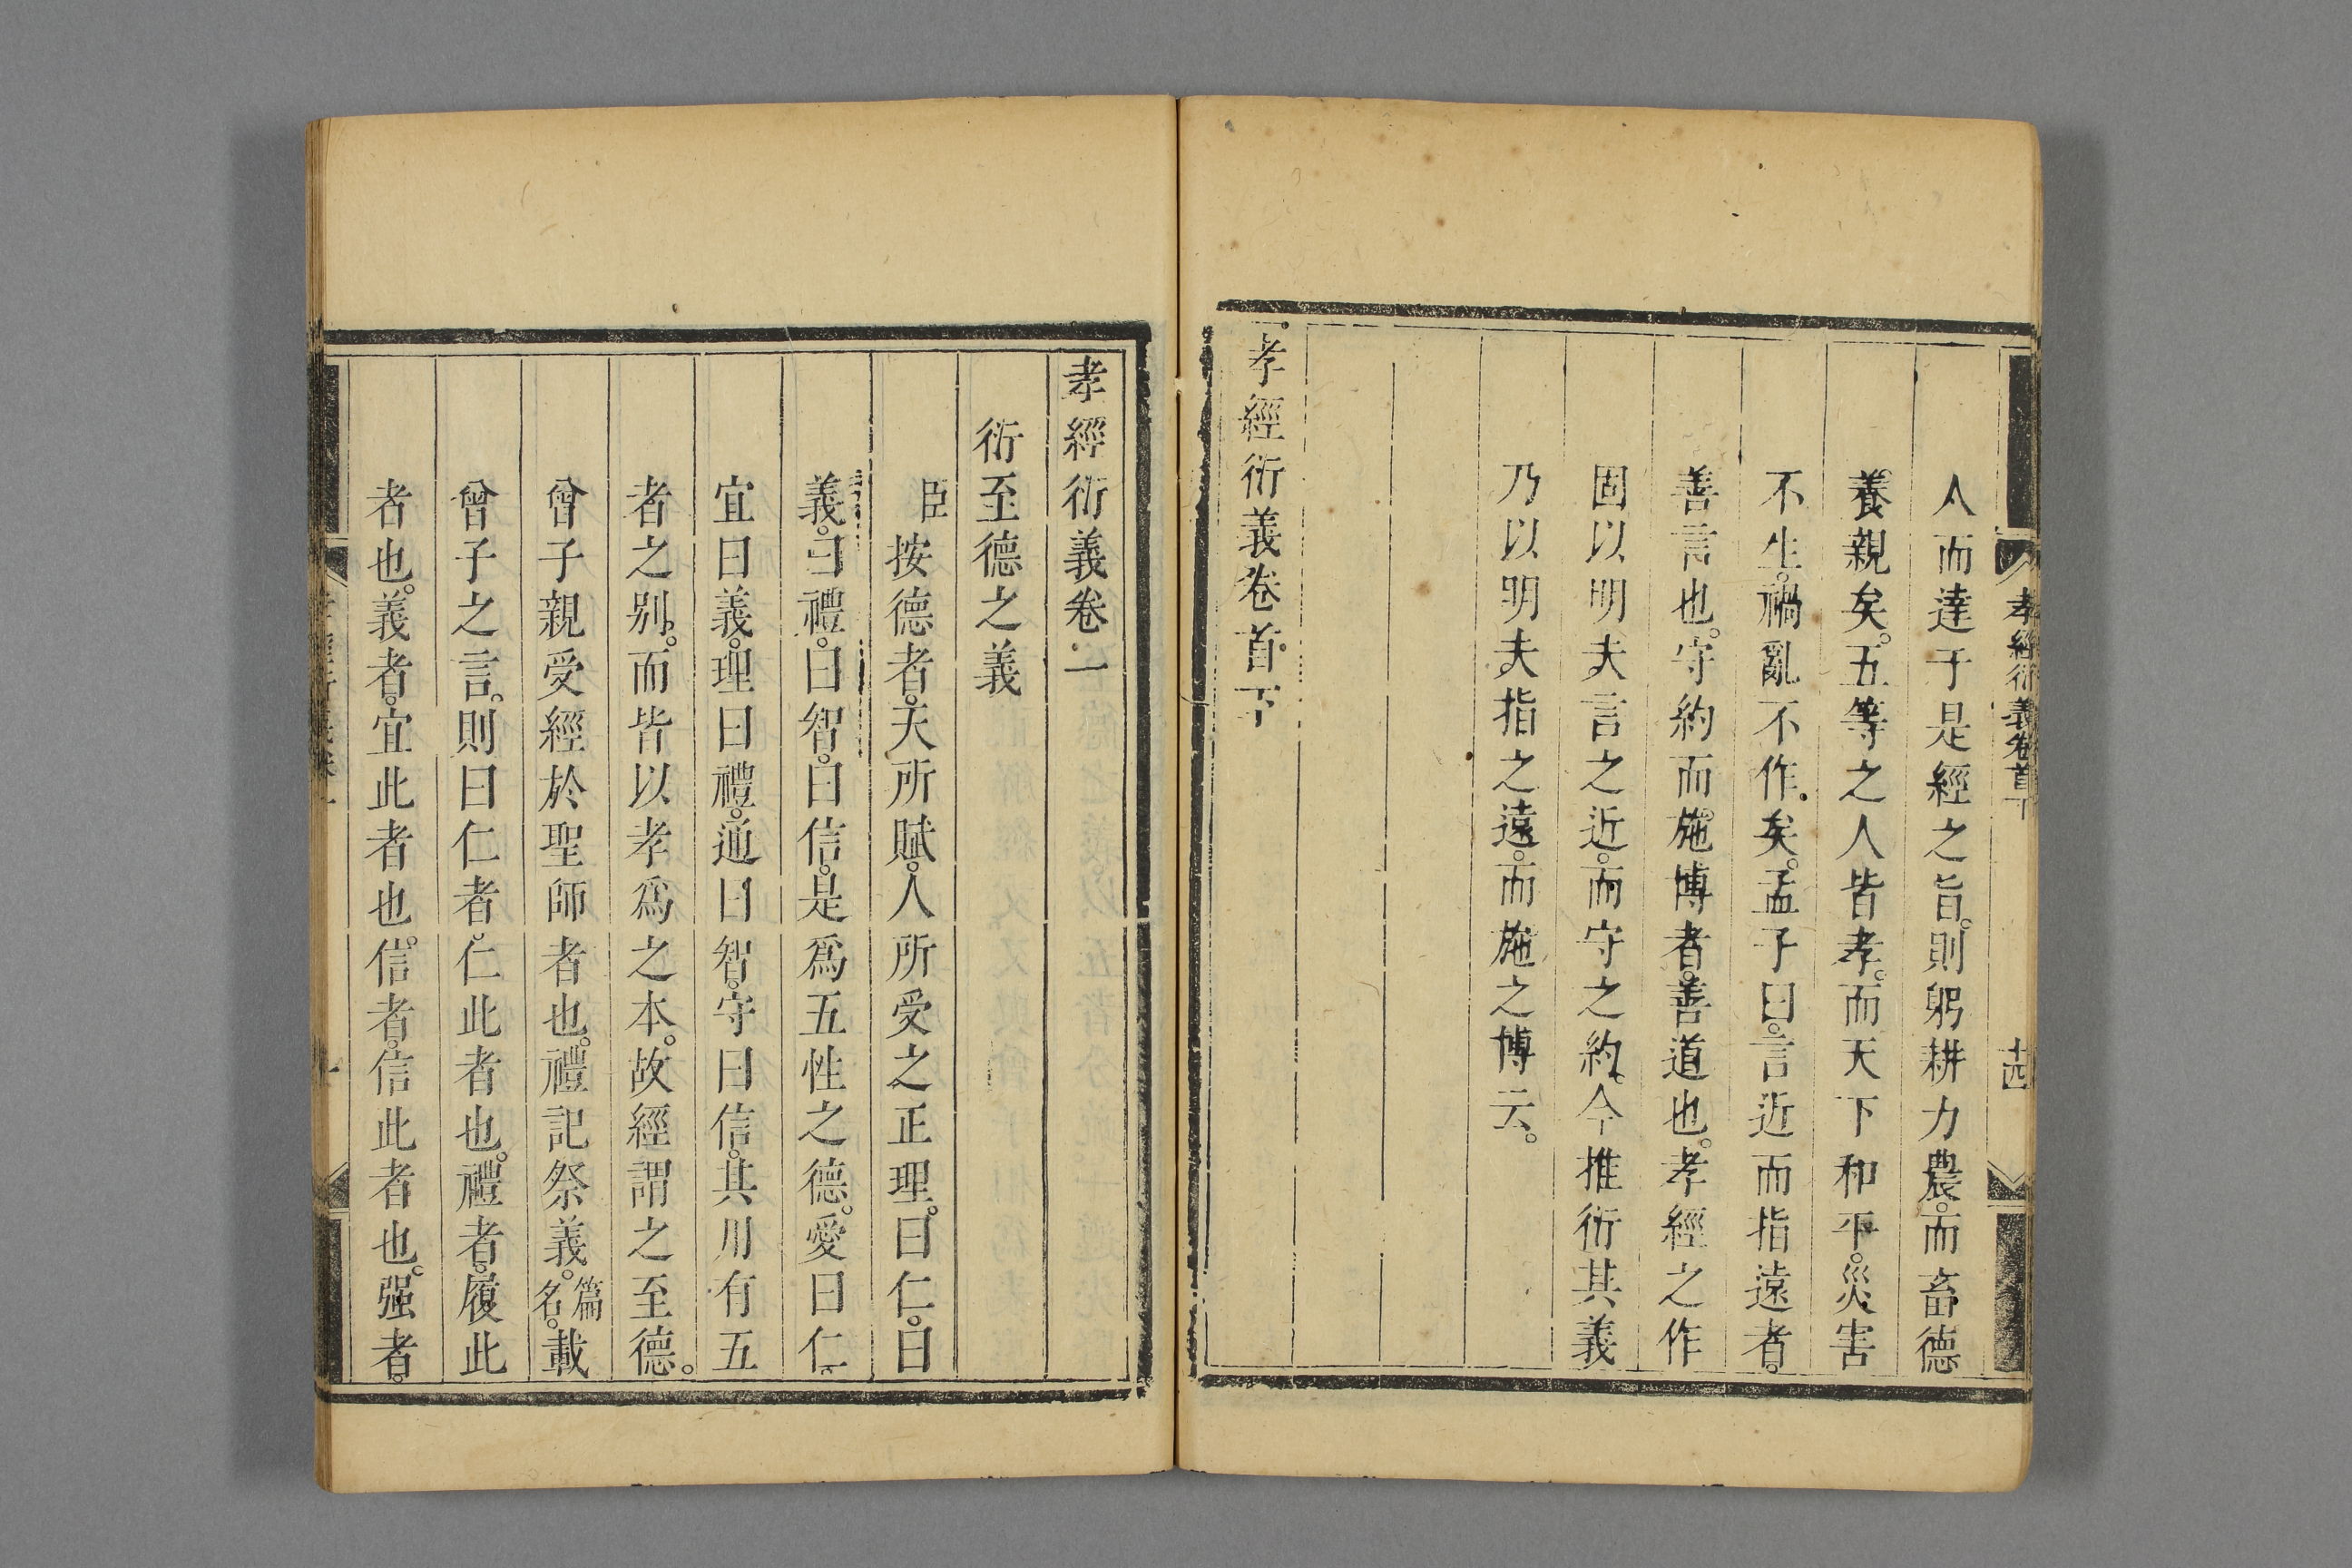 孝經衍義卷首下
十四
人而達于是經之旨。則躬耕力農。而畜德
養親矣。五等之人皆孝。而天下和平。災害
不生。禍亂不作矣。孟子曰。言近而指遠者。
善言也。守約而施博者。善道也。孝經之作
固以明夫言之近。而守之約。今推衍其義
乃以明夫指之遠。而施之博云。
孝經衍義卷首下
孝經衍義卷一
衍至德之義
臣按德者。天所賦。人所受之正理。曰仁。曰
義。曰禮。曰智。曰信。是爲五性之德。愛曰仁
宜曰義。理曰禮。通曰智。守曰信。其用有五
者之別。而皆以孝爲之本。故經謂之至德。
曾子親受經於聖師者也。禮記祭義。篇名。載
曾子之言。則曰仁者。仁此者也。禮者。履此
者也。義者。宜此者也。信者。信此者也。强者。